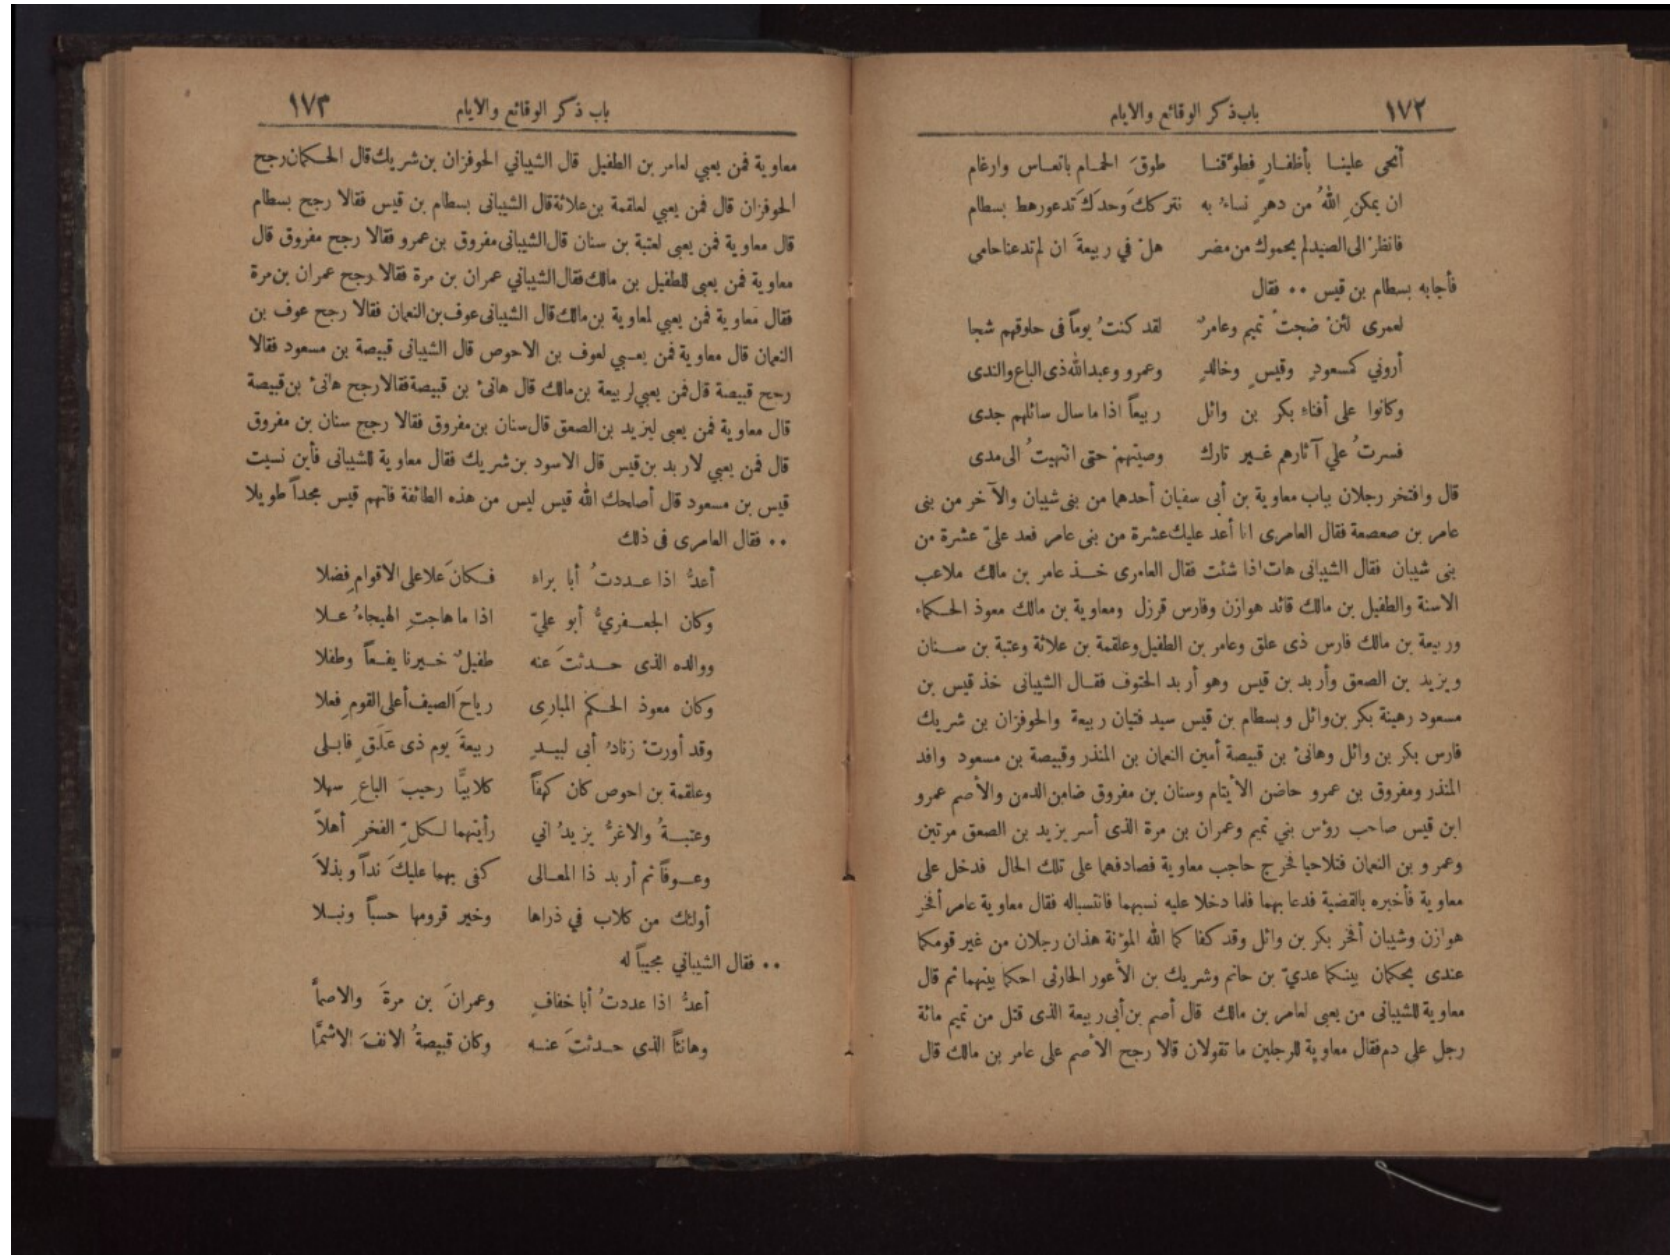 ١٧٢ باب ذكر الوقائع والايام
أنحى علينا بأظفارٍ فطوَّقنا طوقَ الحمام باتعاس وارغام
ان يمكن اللهُ من دهرٍ نساءُ به نتركك وَحدَكَ تدعو رهط بسطام
فانظرْ الى الصيد لم يحموك من مضر هلْ في ربيعةَ ان لم تدعنا حامى
فأجابه بسطام بن قيس ٠٠ فقال
لعمرى لئنْ ضجتْ تميم وعامرٌ لقد كنتُ يوماً فى حلوقهم شجا
أروني كمسعودٍ وقيسٍ وخالدٍ وعمرو وعبدالله ذى الباع والندى
وكانوا على أفناء بكر بن وائل ربيعاً اذا ما سال سائلهم جدى
فسرتُ علي آثارهم غير تارك وصيتهمْ حتى انتهيتُ الى مدى
قال وافتخر رجلان بباب معاوية بن أبى سفيان أحدهما من بنى شيبان والآخر من بنى
عامر بن صعصعة فقال العامرى انا أعد عليك عشرة من بنى عامر فعد علىّ عشرة من
بنى شيبان فقال الشيبانى هات اذا شئت فقال العامرى خذ عامر بن مالك ملاعب
الاسنة والطفيل بن مالك قائد هوازن وفارس قرزل ومعاوية بن مالك معوذ الحكماء
وربيعة بن مالك فارس ذى علق وعامر بن الطفيل وعلقمة بن علاثة وعتبة بن سنان
ويزيد بن الصعق وأربد بن قيس وهو أربد الحتوف فقال الشيبانى خذ قيس بن
مسعود رهينة بكر بن وائل وبسطام بن قيس سيد فتيان ربيعة والحوفزان بن شريك
فارس بكر بن وائل وهانئ بن قبيصة أمين النعمان بن المنذر وقبيصة بن مسعود وافد
المنذر ومفروق بن عمرو حاضن الأيتام وسنان بن مفروق ضامن الدمن والأصم عمرو
ابن قيس صاحب رؤس بني تميم وعمران بن مرة الذى أسر يزيد بن الصعق مرتين
وعمرو بن النعمان فتلاحيا فخرج حاجب معاوية فصادفهما على تلك الحال فدخل على
معاوية فأخبره بالقضية فدعا بهما فلما دخلا عليه نسبهما فانتسبا له فقال معاوية عامر أفخر
هوازن وشيبان أفخر بكر بن وائل وقد كفا كما الله المؤنة هذان رجلان من غير قومكما
عندى يحكمان بينكما عديّ بن حاتم وشريك بن الأعور الحارثى احكما بينهما ثم قال
معاوية للشيبانى من يعبى لعامر بن مالك قال أصم بن أبى ربيعة الذى قتل من تميم مائة
رجل على دم فقال معاوية للرجلين ما تقولان قالا رجح الأصم على عامر بن مالك قال
باب ذكر الوقائع والايام ١٧٣
معاوية فمن يعبي لعامر بن الطفيل قال الشيباني الحوفزان بن شريك قال الحكمان رجح
الحوفزان قال فمن يعبي لعلقمة بن علاثة قال الشيبانى بسطام بن قيس فقالا رجح بسطام
قال معاوية فمن يعبى لعتبة بن سنان قال الشيبانى مفروق بن عمرو فقالا رجح مفروق قال
معاوية فمن يعبى للطفيل بن مالك فقال الشيباني عمران بن مرة فقالا رجح عمران بن مرة
فقال معاوية فمن يعبي لمعاوية بن مالك قال الشيبانى عوف بن النعمان فقالا رجح عوف بن
النعمان قال معاوية فمن يعبي لعوف بن الاحوص قال الشيبانى قبيصة بن مسعود فقالا
رجح قبيصة قال فمن يعبي لربيعة بن مالك قال هانئ بن قبيصة فقالا رجح هانئ بن قبيصة
قال معاوية فمن يعبى ليزيد بن الصعق قال سنان بن مفروق فقالا رجح سنان بن مفروق
قال فمن يعبي لاربد بن قيس قال الاسود بن شريك فقال معاوية للشيبانى فأين نسيت
قيس بن مسعود قال أصلحك الله قيس ليس من هذه الطائفة فانهم قيس مجداً طويلا
٠٠ فقال العامرى فى ذلك
أعدُّ اذا عددتُ أبا براء فكانَ علا على الاقوامِ فضلا
وكان الجعفريُّ أبو عليّ اذا ما هاجتِ الهيجاءُ علا
ووالده الذى حدثتَ عنه طفيلٌ خيرنا يفعاً وطفلا
وكان معوذ الحكم المبارى رياحَ الصيف أعلى القومِ فعلا
وقد أورتْ زنادُ أبى لبيدٍ ربيعةَ يوم ذى عَلَقٍ فابلى
وعلقمة بن احوص كان كهفاً كلابيًّا رحيبَ الباعِ سهلا
وعتبةُ والاغرُّ يزيدُ اني رأيتهما لكلّ الفخرِ أهلاً
وعوفاً ثم أربد ذا المعالى كفى بهما عليكَ نداً وبذلاَ
أولئك من كلاب في ذراها وخير قرومها حسباً ونبلا
٠٠ فقال الشيباني مجيباً له
أعدُّ اذا عددتُ أبا خفافٍ وعمرانَ بن مرةَ والاصمَّا
وهانئاً الذى حدثتَ عنه وكان قبيصةُ الانفَ الاشمَّا